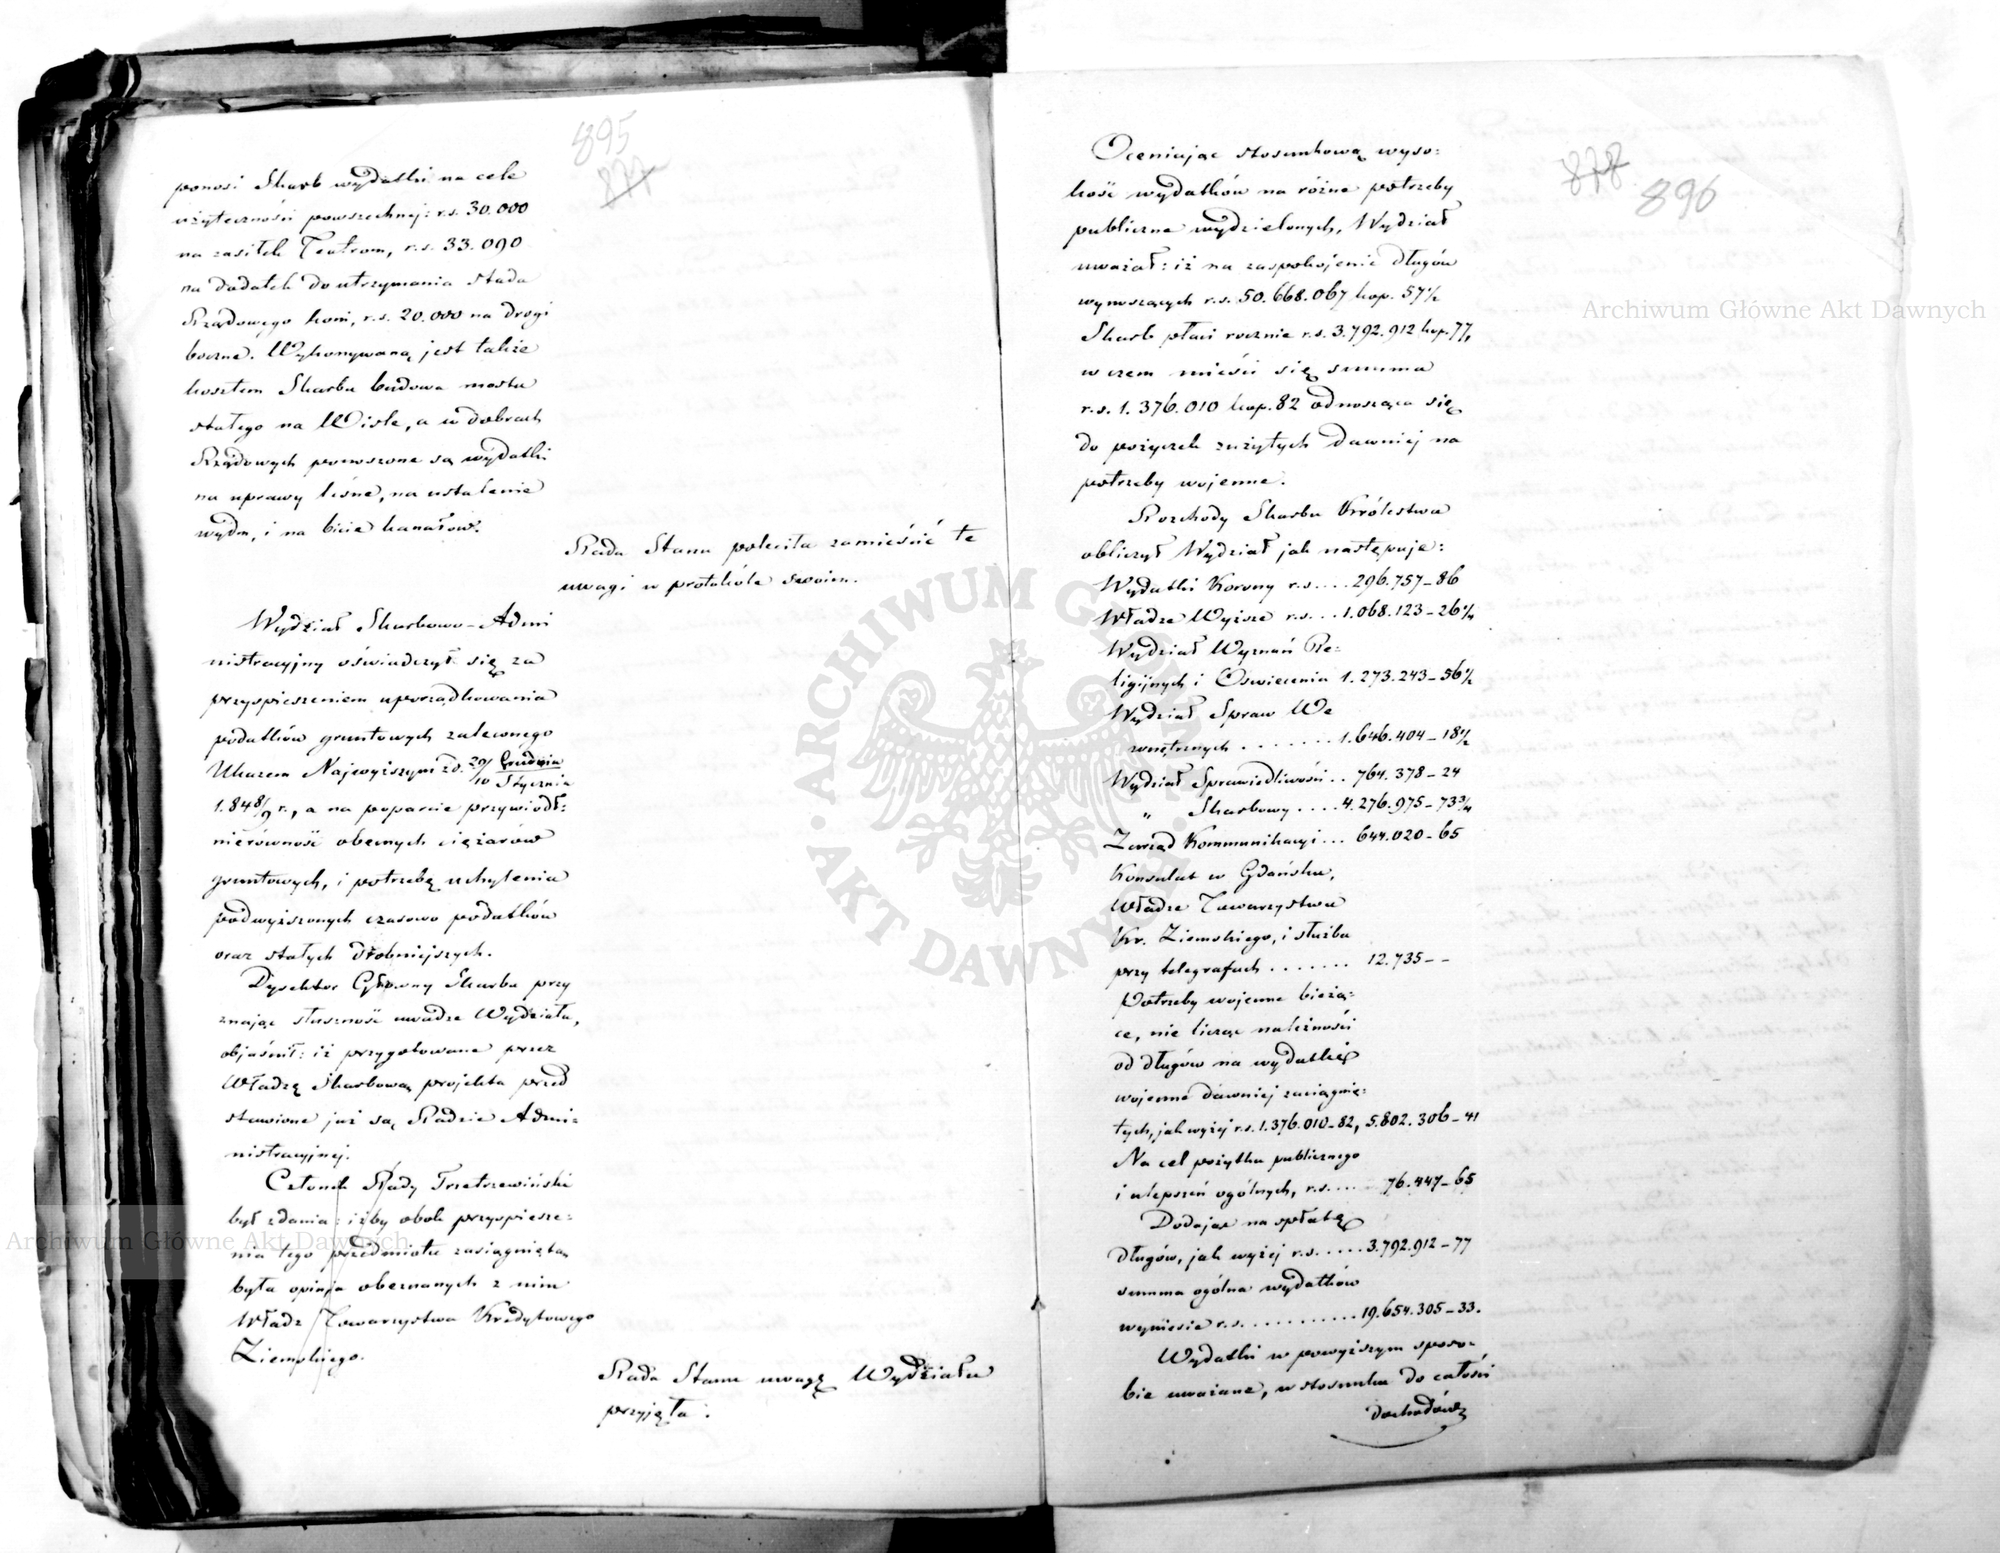 895
877
ponosi Skarb wydatki na cele
użyteczności powszechnej: r.s. 30.000
na zasiłek Teatrom, r.s. 33.090
na dodatek do utrzymania stada
Rządowego koni, r.s. 20.000 na drogi
boczne. Wykonywaną jest także
kosztem Skarbu budowa mostu
stałego na Wiśle, a w dobrach
Rządowych ponoszone są wydatki
na uprawy leśne, na ustalenie
wydm, i na bicie kanałow.
Rada Stanu poleciła zamieścić te
uwagi w protokóle swoim.
Wydział Skarbowo-Admi
nistracyjny oświadczył się za
przyspieszeniem uporządkowania
podatków gruntowych zaleconego
Ukazem Najwyższym z d. 29/10 Grudnia/Stycznia
1.848/9 r., a na poparcie przywiódł:
nierówność obecnych ciężarów
gruntowych, i potrzebę uchylenia
podwyższonych czasowo podatków
oraz stałych drobniejszych.
Dyrektor Główny Skarbu przy
znając słuszność uwadze Wydziału,
objaśnił: iż przygotowane przez
Władzę Skarbową projekta przed
stawione już są Radzie Admi=
nistracyjnej.
Członek Rady Trzetrzewiński
był zdania: iżby obok przyspiesze=
nia tego przedmiotu zasiągniętą
była opinja obeznanych z nim
Władz Towarzystwa Kredytowego
Ziemskiego.
Rada Stanu uwagę Wydziału
przyjęła.
878
896
Oceniając stosunkową wyso=
kość wydatków na różne potrzeby
publiczne wydzielonych, Wydział
uważał: iż na zaspokojenie długów
wynoszących r.s. 50.668.067 kop. 57½
Skarb płaci rocznie r.s. 3.792.912 kop. 77,
w czem mieści się summa
r.s. 1.376.010 kop. 82 odnosząca się
do pożyczek zużytych dawniej na
potrzeby wojenne.
Rozchody Skarbu Królestwa
obliczył Wydział jak następuje:
Wydatki Korony r.s. .... 296.757-86
Władze Wyższe r.s. ... 1.068.123-26¼
Wydział Wyznań Re=
ligijnych i Oswiecenia 1.273.243-56½
Wydział Spraw We
wnętrznych ....... 1.646.404-18½
Wydział Sprawiedliwości .. 764.378-24
" Skarbowy .... 4.276.975-73¾
Zarząd Kommunikacyi ... 644.020-65
Konsulat w Gdańsku,
Władze Towarzystwa
Kr. Ziemskiego, i służba
przy telegrafach ....... 12.735--
Potrzeby wojenne bieżą=
ce, nie licząc należności
od długów na wydatki
wojenne dawniej zaciągnię=
tych, jak wyżej r.s. 1.376.010-82, 5.802.306-41
Na cel pożytku publicznego
i ulepszeń ogólnych, r.s. .... 76.447-65
Dodając na spłatę
długów, jak wyżej r.s. ..... 3.792.912-77
summa ogólna wydatków
wyniesie r.s. ........... 19.654.305-33.
Wydatki w powyższym sposo=
bie uważane, w stosunku do całości
dochodów
Archiwum Główne Akt Dawnych
Archiwum Główne Akt Dawnych
ARCHIWUM GŁÓWNE AKT DAWNYCH